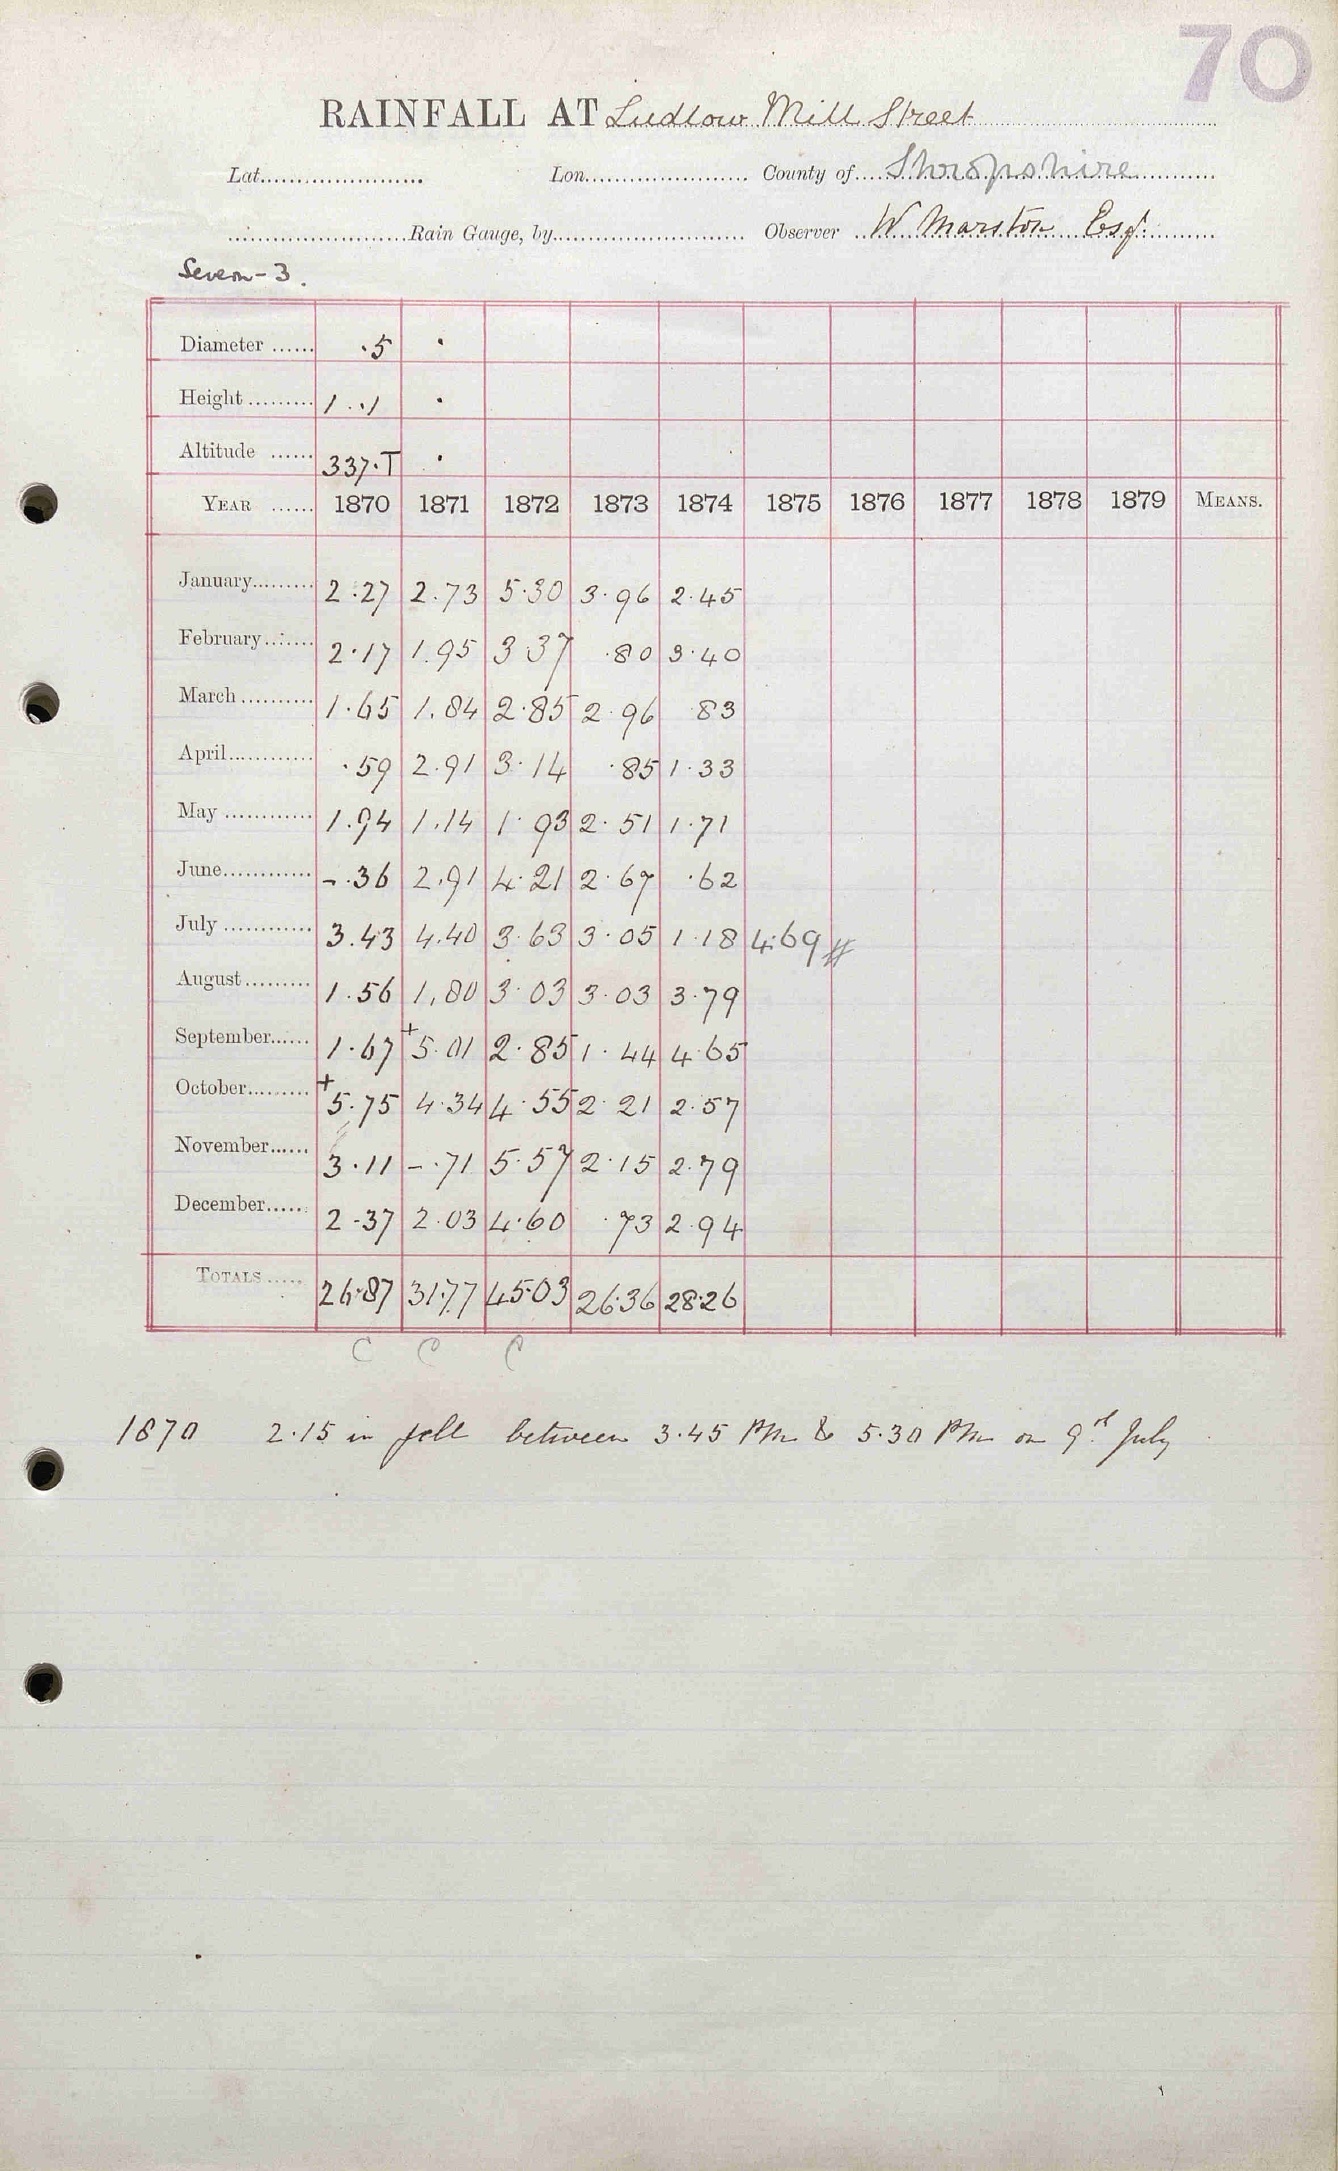 70
RAINFALL AT Ludlow Mill Street
Lat. Lon. County of Shropshire
Rain Gauge, by Observer W Marston Esq.
Severn - 3.
Diameter ...... ·5 ·
Height ......... 1 . ·1 ·
Altitude ...... 337·T ·
YEAR ...... 1870 1871 1872 1873 1874 1875 1876 1877 1878 1879 MEANS.
January......... 2·27 2.73 5·30 3·96 2·45
February........ 2·17 1.95 3 37 ·80 3·40
March .......... 1·65 1.84 2·85 2 96 83
April............ ·59 2.91 3·14 ·85 1·33
May ............ 1.94 1.14 1·93 2·51 1·71
June............ -.36 2.91 4·21 2·67 ·62
July ............ 3.43 4.40 3·63 3·05 1·18 4.69 #
August......... 1.56 1.80 3·03 3·03 3·79
September...... 1·67 +5.01 2·85 1·44 4·65
October......... +5.75 4.34 4·55 2·21 2·57
November...... 3·11 -.71 5·57 2·15 2·79
December...... 2·37 2.03 4·60 ·73 2·94
TOTALS ..... 26·87 31.77 45·03 26·36 28·26
C C C
1870 2·15 in fell between 3·45 PM & 5·30 PM on 9th July